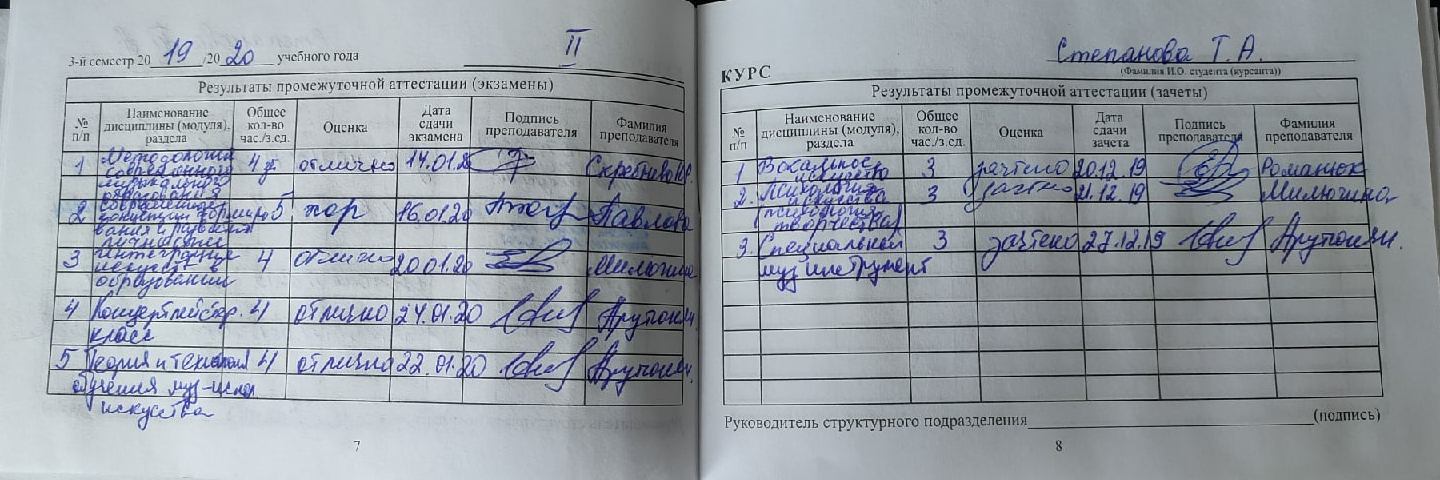 3-й семестр 2019/2020 учебного года
II
Результаты промежуточной аттестации (экзамены)
№ п/п Наименование дисциплины (модуля), раздела Общее кол-во час./з.ед. Оценка Дата сдачи экзамена Подпись преподавателя Фамилия преподавателя
1 Методология 4 отлично 14.01.20
современного
музыкального
образования
2 Современные концепции 5 хор 16.01.20 Павлова
личности
3 Интеграция 4 отлично 20.01.20 Милючина
искусств в
образовании
4 Концертмейстер. 4 отлично 24.01.20 Арутюнян
класс
5 Теория и технология 4 отлично 22.01.20 Арутюнян
обучения муз-испол
искусства
7
КУРС
Степанова Т. А.
(Фамилия И.О. студента (курсанта))
Результаты промежуточной аттестации (зачеты)
№ п/п Наименование дисциплины (модуля), раздела Общее кол-во час./з.ед. Оценка Дата сдачи зачета Подпись преподавателя Фамилия преподавателя
1 Вокальное 3 зачтено 20.12.19 Романюк
искусство
2. Психология 3 зачтено 21.12.19 Милючина
искусства
(психология
творчества)
3. Специальный 3 зачтено 27.12.19 Арутюнян.
муз инструмент
Руководитель структурного подразделения (подпись)
8